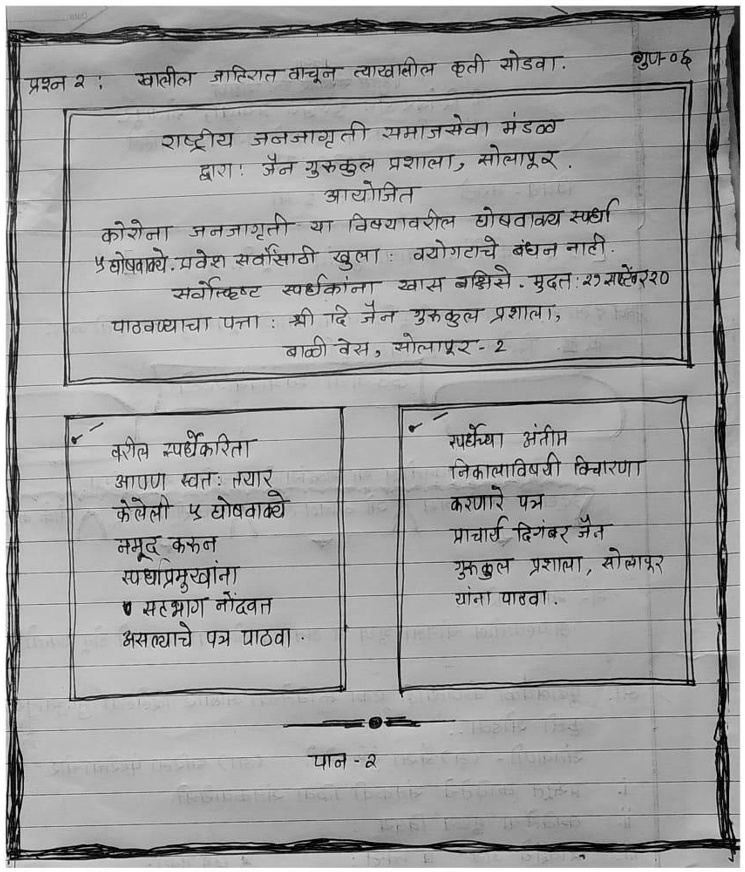 प्रश्न २ : खालील जाहिरात वाचून त्याखालील कृती सोडवा. गुण-०६
राष्ट्रीय जनजागृती समाजसेवा मंडळ
द्वारा: जैन गुरुकुल प्रशाला, सोलापूर.
आयोजित
कोरोना जनजागृती या विषयावरील घोषवाक्य स्पर्धा
५ घोषवाक्ये. प्रवेश सर्वांसाठी खुला: वयोगटाचे बंधन नाही.
सर्वोत्कृष्ट स्पर्धकांना खास बक्षिसे. मुदत: २९ सप्टेंबर २०
पाठवण्याचा पत्ता: श्री दि जैन गुरुकुल प्रशाला,
बाळी वेस, सोलापूर - २
वरील स्पर्धेकरिता
आपण स्वत: तयार
केलेली ५ घोषवाक्ये
नमूद करून
स्पर्धाप्रमुखांना
सहभाग नोंदवत
असल्याचे पत्र पाठवा.
स्पर्धेच्या अंतीम
निकालाविषयी विचारणा
करणारे पत्र
प्राचार्य दिगंबर जैन
गुरुकुल प्रशाला, सोलापूर
यांना पाठवा.
पान - २